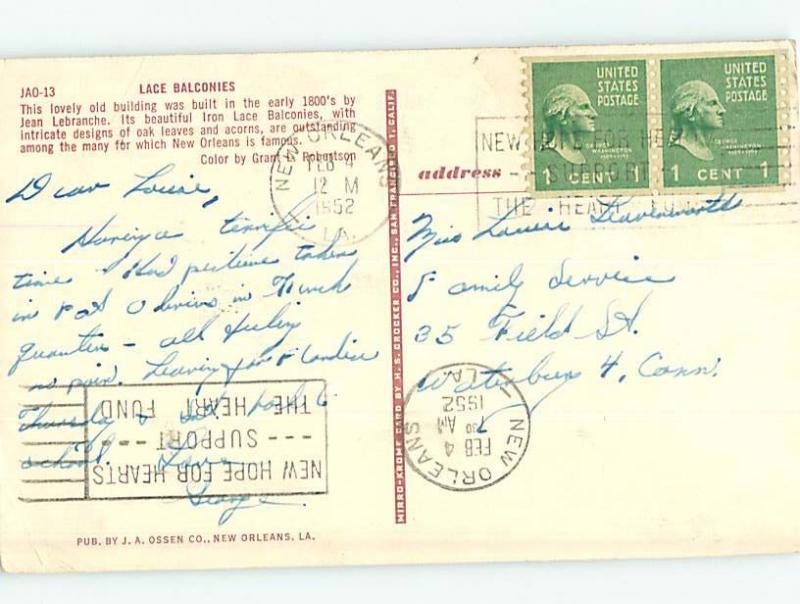 JAO-13 LACE BALCONIES
This lovely old building was built in the early 1800's by
Jean Lebranche. Its beautiful Iron Lace Balconies, with
intricate designs of oak leaves and acorns, are outstanding
among the many for which New Orleans is famous.
Color by Grant L. Robertson
Dear Louise,
Having a terrific
time - Had picture taken
in Pat O in French
quarter - all feeling
no pain. Leaving for Florida
Thursday & back to
school. Love
George
PUB. BY J. A. OSSEN CO., NEW ORLEANS, LA.
MIRRO-KROME CARD BY H. S. CROCKER CO., INC., SAN FRANCISCO 1, CALIF.
address
UNITED
STATES
POSTAGE
GEORGE
WASHINGTON
1 CENT 1
UNITED
STATES
POSTAGE
GEORGE
WASHINGTON
1 CENT 1
NEW ORLEANS
FEB
12 M
1952
LA.
NEW HOPE FOR HEARTS
-- SUPPORT --
THE HEART FUND
Miss Louise Leavenworth
Family Service
35 Field St.
Waterbury 4, Conn.
NEW ORLEANS
FEB 4
730 AM
1952
LA.
NEW HOPE FOR HEARTS
--- SUPPORT ---
THE HEART FUND